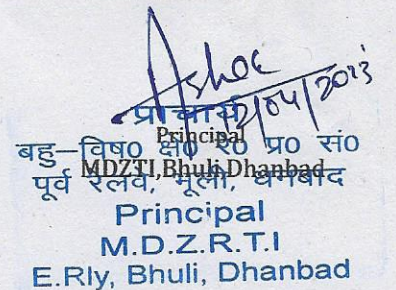 Ashok
12/04/2023
प्राचार्य
Principal
बहु-विष० क्षे० रे० प्र० सं०
MDZTI,Bhuli,Dhanbad
पूर्व रेलवे, भूली, धनबाद
Principal
M.D.Z.R.T.I
E.Rly, Bhuli, Dhanbad